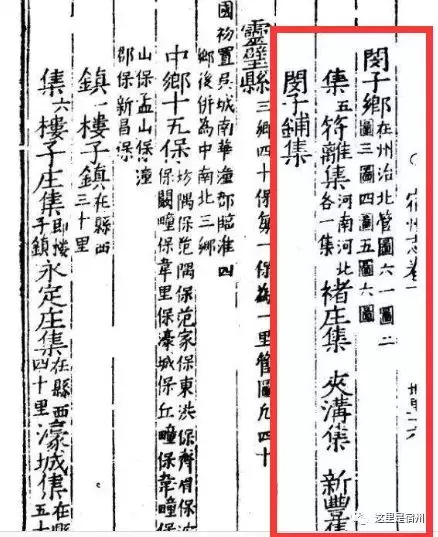 宿州志卷一
閔子鄉在州治北管圖六一圖二
圖三圖四圖五圖六圖
集五符離集河南河北各一集褚庄集夾溝集新豐集
閔子鋪集
靈璧縣三鄉四十保每一保為一里管圖凡四十
國初置吳城南華潼郡臨淮四
鄉後併為中南北三鄉
中鄉十五保坊隅保范隅保范家保東洪保齊眉保
保闞疃保韋里保濠城保丘疃保韋疃保
山保孟山保潼
郡保新昌保
鎮一樓子鎮在縣西三十里
集六樓子庄集即樓子鎮永定庄集在縣西四十里濠城集在縣五十
这里是宿州